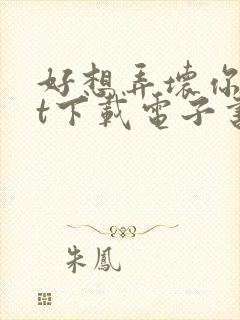 好想弄壞你
t下載電子書
朱鳳